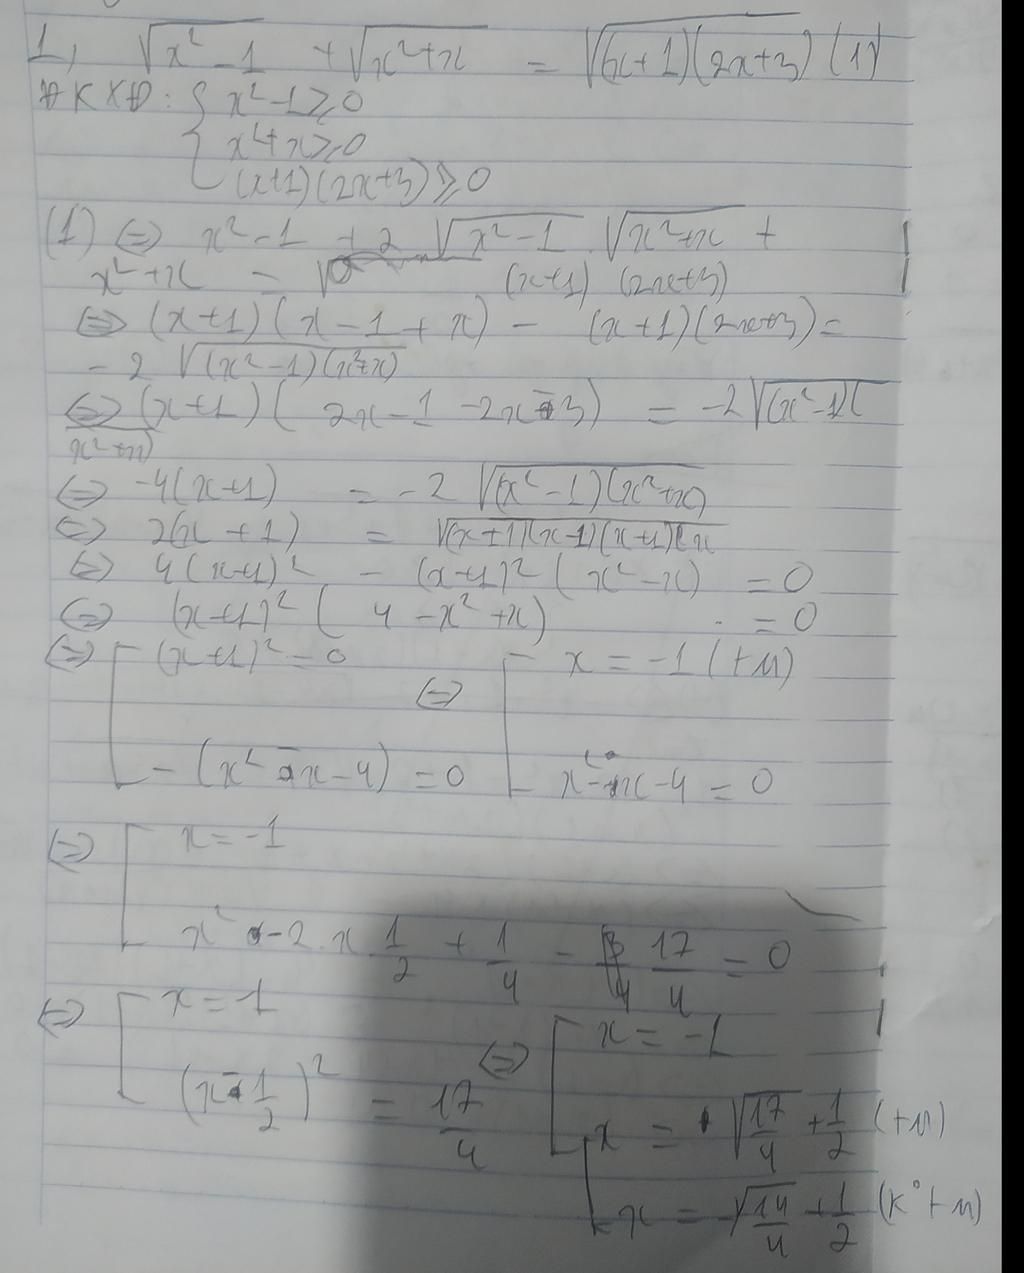 1, √(x² - 1) + √(x² + x) = √((x+1)(2x+3)) (1)
ĐKXĐ: { x² - 1 ≥ 0
x² + x ≥ 0
(x+1)(2x+3) ≥ 0
(1) ⇔ x² - 1 + 2 √(x² - 1) . √(x² + x) +
x² + x = (x+1) (2x+3)
⇔ (x+1)(x - 1 + x) - (x+1)(2x+3) =
- 2 √((x² - 1)(x² + x))
⇔ (x+1)( 2x - 1 - 2x - 3) = -2√((x² - 1)(
x² + x)
⇔ -4(x+1) = -2 √((x² - 1)(x² + x))
⇔ 2(x + 1) = √((x+1)(x-1)(x+1)(x
⇔ 4(x+1)² - (x+1)² (x² - x) = 0
⇔ (x+1)² ( 4 - x² + x) = 0
⇔ [ (x+1)² = 0 ⇔ [ x = -1 (+m)
- (x² - x - 4) = 0 x² - x - 4 = 0
⇔ [ x = -1
x² - 2.x 1/2 + 1/4 - 17/4 = 0
⇔ [ x = -1 ⇔ [ x = -1
(x - 1/2)² = 17/4 x = √(17/4) + 1/2 (+m)
x = -√(17/4) + 1/2 (k° + m)